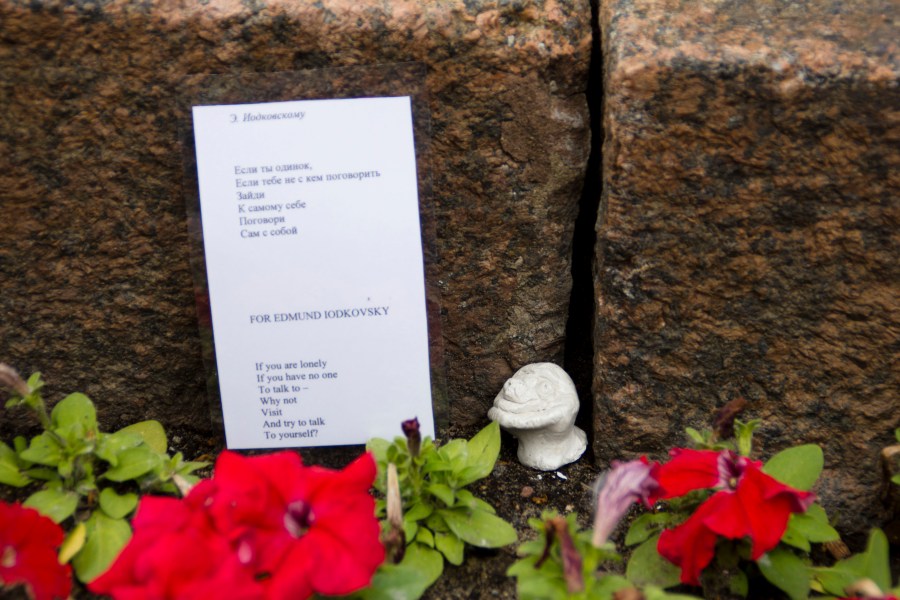 Э. Иодковскому
Если ты одинок,
Если тебе не с кем поговорить
Зайди
К самому себе
Поговори
Сам с собой
FOR EDMUND IODKOVSKY
If you are lonely
If you have no one
To talk to –
Why not
Visit
And try to talk
To yourself?